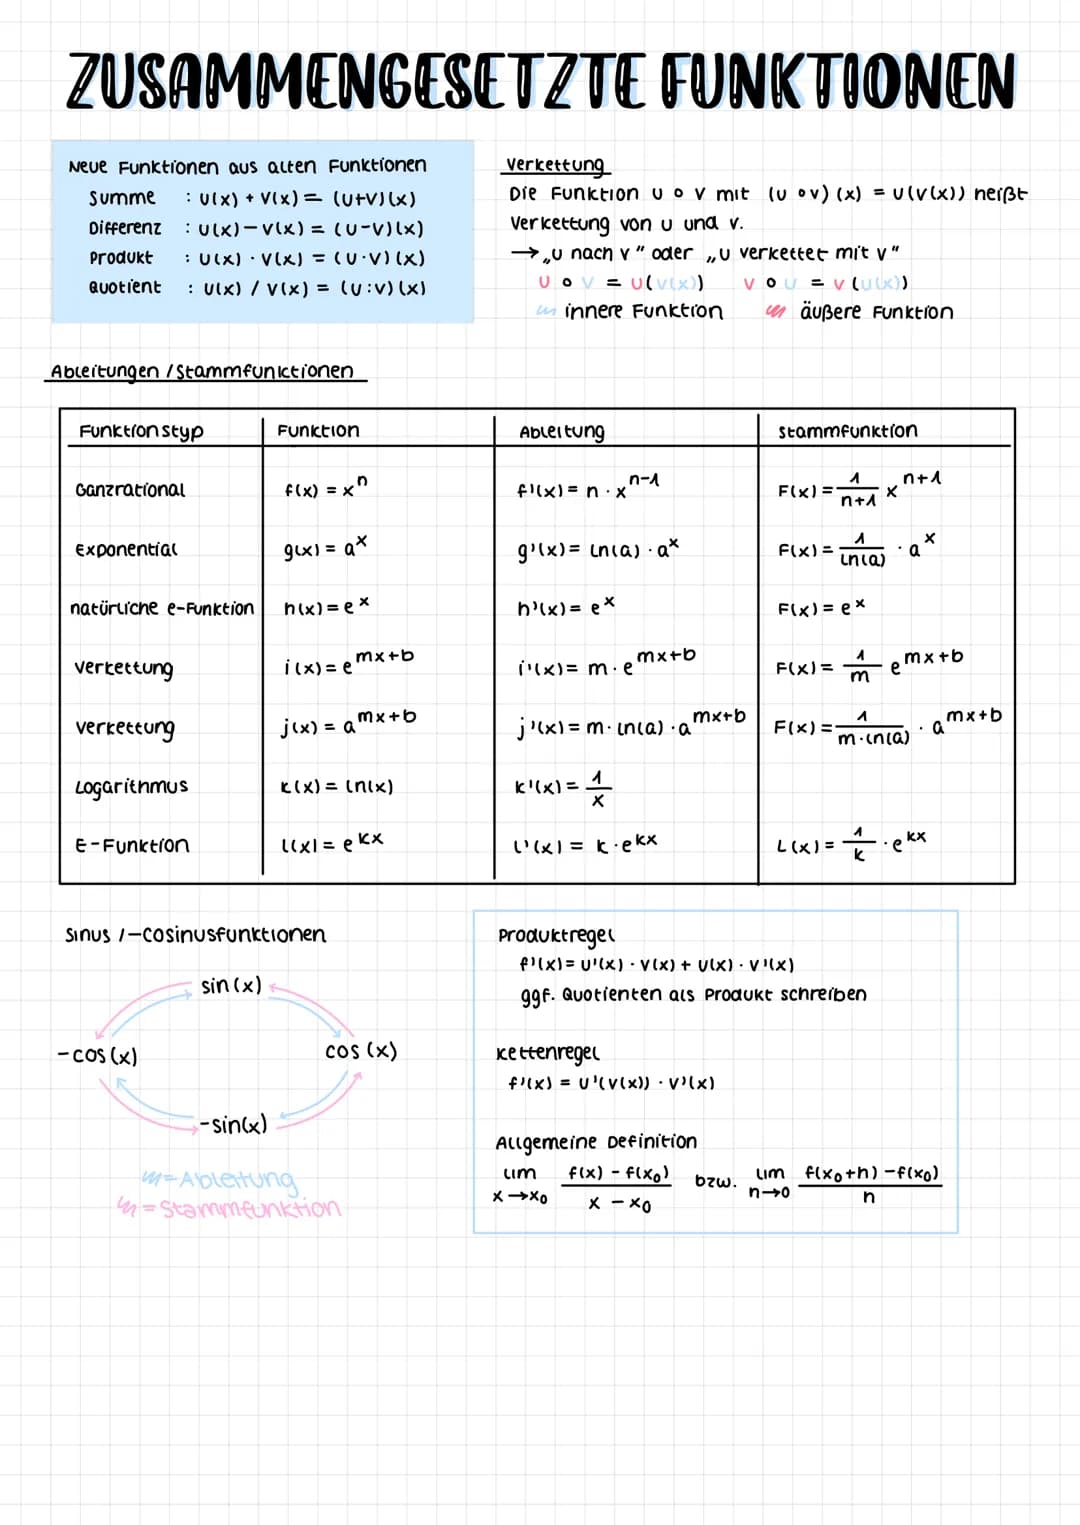 ZUSAMMENGESETZTE FUNKTIONEN
Neue Funktionen aus alten Funktionen
Summe : u(x) + v(x) = (u+v)(x)
Differenz : u(x) − v(x) = (u−v)(x)
Produkt : u(x) · v(x) = (u·v)(x)
Quotient : u(x) / v(x) = (u:v)(x)
Verkettung
Die Funktion u ∘ v mit (u ∘ v)(x) = u(v(x)) heißt
Verkettung von u und v.
→ „u nach v" oder „u verkettet mit v"
u ∘ v = u(v(x)) v ∘ u = v(u(x))
innere Funktion äußere Funktion
Ableitungen / Stammfunktionen
Funktionstyp Funktion Ableitung Stammfunktion
Ganzrational f(x) = x^n f'(x) = n · x^(n−1) F(x) = 1/(n+1) x^(n+1)
Exponential g(x) = a^x g'(x) = ln(a) · a^x F(x) = 1/ln(a) · a^x
natürliche e-Funktion h(x) = e^x h'(x) = e^x F(x) = e^x
Verkettung i(x) = e^(mx+b) i'(x) = m · e^(mx+b) F(x) = 1/m e^(mx+b)
Verkettung j(x) = a^(mx+b) j'(x) = m · ln(a) · a^(mx+b) F(x) = 1/(m·ln(a)) · a^(mx+b)
Logarithmus k(x) = ln(x) k'(x) = 1/x
E-Funktion l(x) = e^(kx) l'(x) = k · e^(kx) L(x) = 1/k · e^(kx)
Sinus /-Cosinusfunktionen
sin(x)
-cos(x) cos(x)
-sin(x)
= Ableitung
= Stammfunktion
Produktregel
f'(x) = u'(x) · v(x) + u(x) · v'(x)
ggf. Quotienten als Produkt schreiben
Kettenregel
f'(x) = u'(v(x)) · v'(x)
Allgemeine Definition
lim x→x₀ (f(x) − f(x₀))/(x − x₀) bzw. lim h→0 (f(x₀+h) − f(x₀))/h